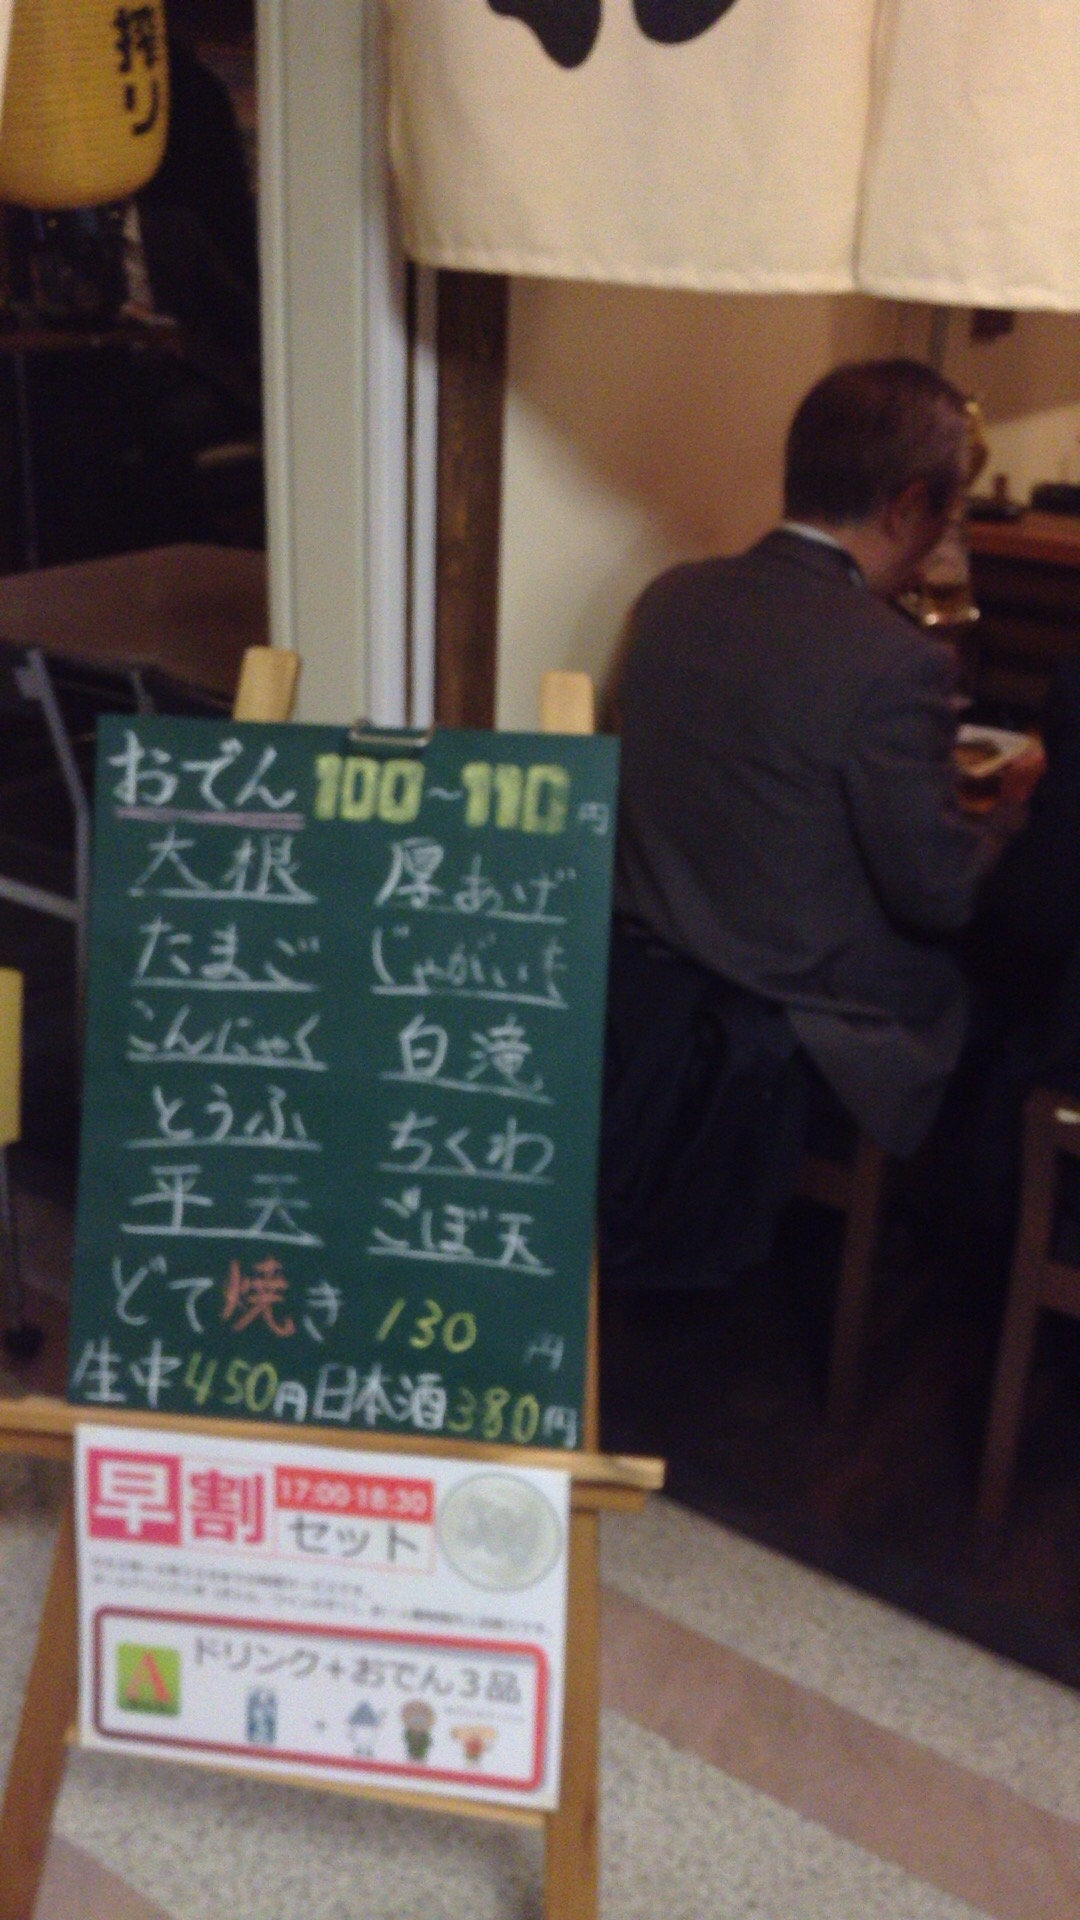 搾り
おでん 100～110円
大根 厚あげ
たまご じゃがいも
こんにゃく 白滝
とうふ ちくわ
平天 ごぼ天
どて焼き 130円
生中450円 日本酒380円
早割 17:00-18:30
セット
A ドリンク+おでん3品